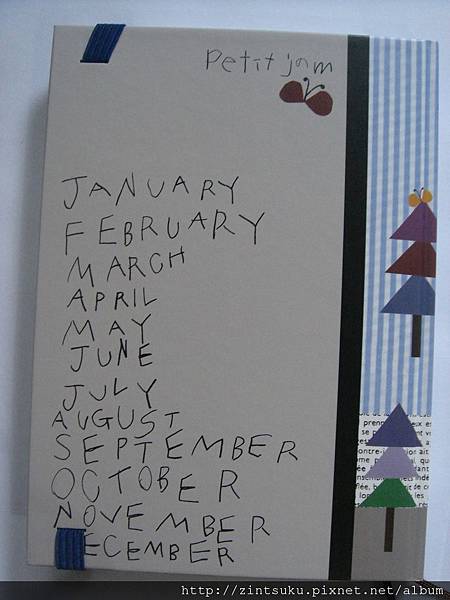 Petit jam
JANUARY
FEBRUARY
MARCH
APRIL
MAY
JUNE
JULY
AUGUST
SEPTEMBER
OCTOBER
NOVEMBER
ECEMBER
http://zintsuku.pixnet.net/album